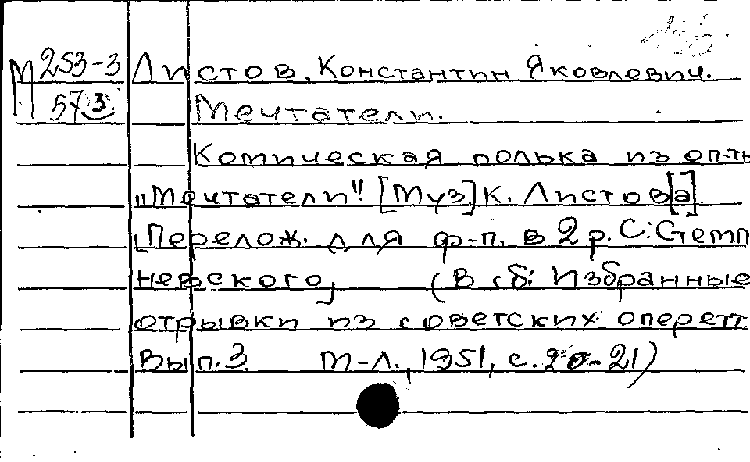 М 253-3 Листов, Константин Яковлевич.
57 3 Мечтатели.
Комическая полька из оп-ты
"Мечтатели" [Муз] К. Листов[а]
[Перелож. для ф-п. в 2 р. С. Стемп
невского] (В сб: Избранные
отрывки из советских оперетт
Вып. 3. М-Л., 1951, с. 20-21)